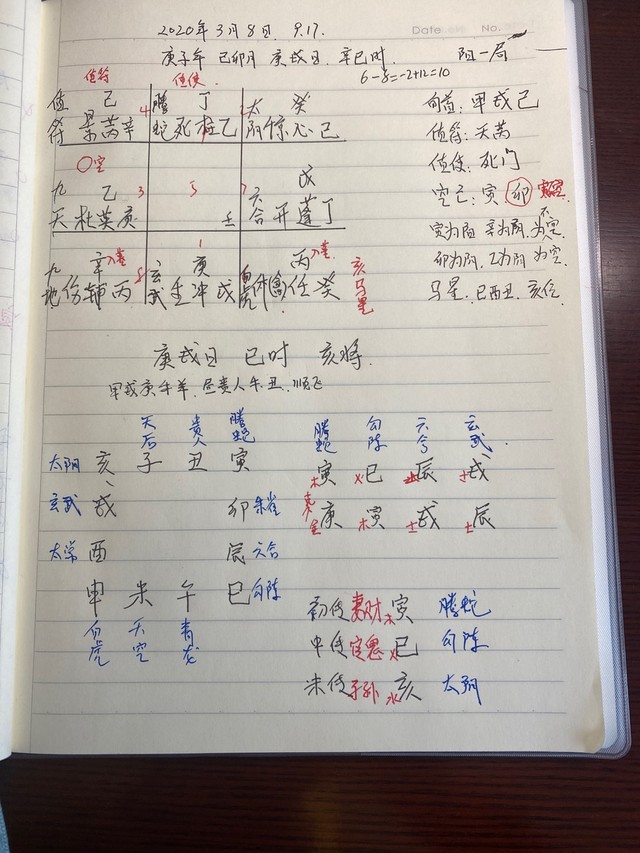 Date No.
2020年3月8日. 9.17.
庚子年 己卯月 庚戌日. 辛巳时. 阳一局
6-8=-2+12=10
值符 值使
值 己 4 螣 丁 太 癸
符 景芮辛 蛇死柱乙 阴惊心己
〇空
九 乙 3 5 7 六 戊
天 杜英庚 壬 合开蓬丁
九 辛入墓 8 玄 庚 1 白 丙入墓
地 伤辅丙 武 生冲戊 虎 休任癸
亥马星
旬首: 甲戌己
值符: 天芮
值使: 死门
空亡: 寅 卯
寅为阳 辛为阴. 不为空
卯为阴, 乙为阴 为空.
马星: 巳酉丑. 亥位
庚戌日 巳时 亥将.
甲戊庚牛羊. 昼贵人牛丑. 顺飞
天后 贵人 螣蛇
太阴 亥 子 丑 寅
玄武 戌 卯 朱雀
太常 酉 辰 六合
申 未 午 巳 勾陈
白虎 天空 青龙
螣蛇 勾陈 六合 玄武
木寅 火巳 土辰 土戌
金庚 木寅 土戌 土辰
初传 妻财 木 寅 螣蛇
中传 官鬼 火 巳 勾陈
末传 子孙 水 亥 太阴